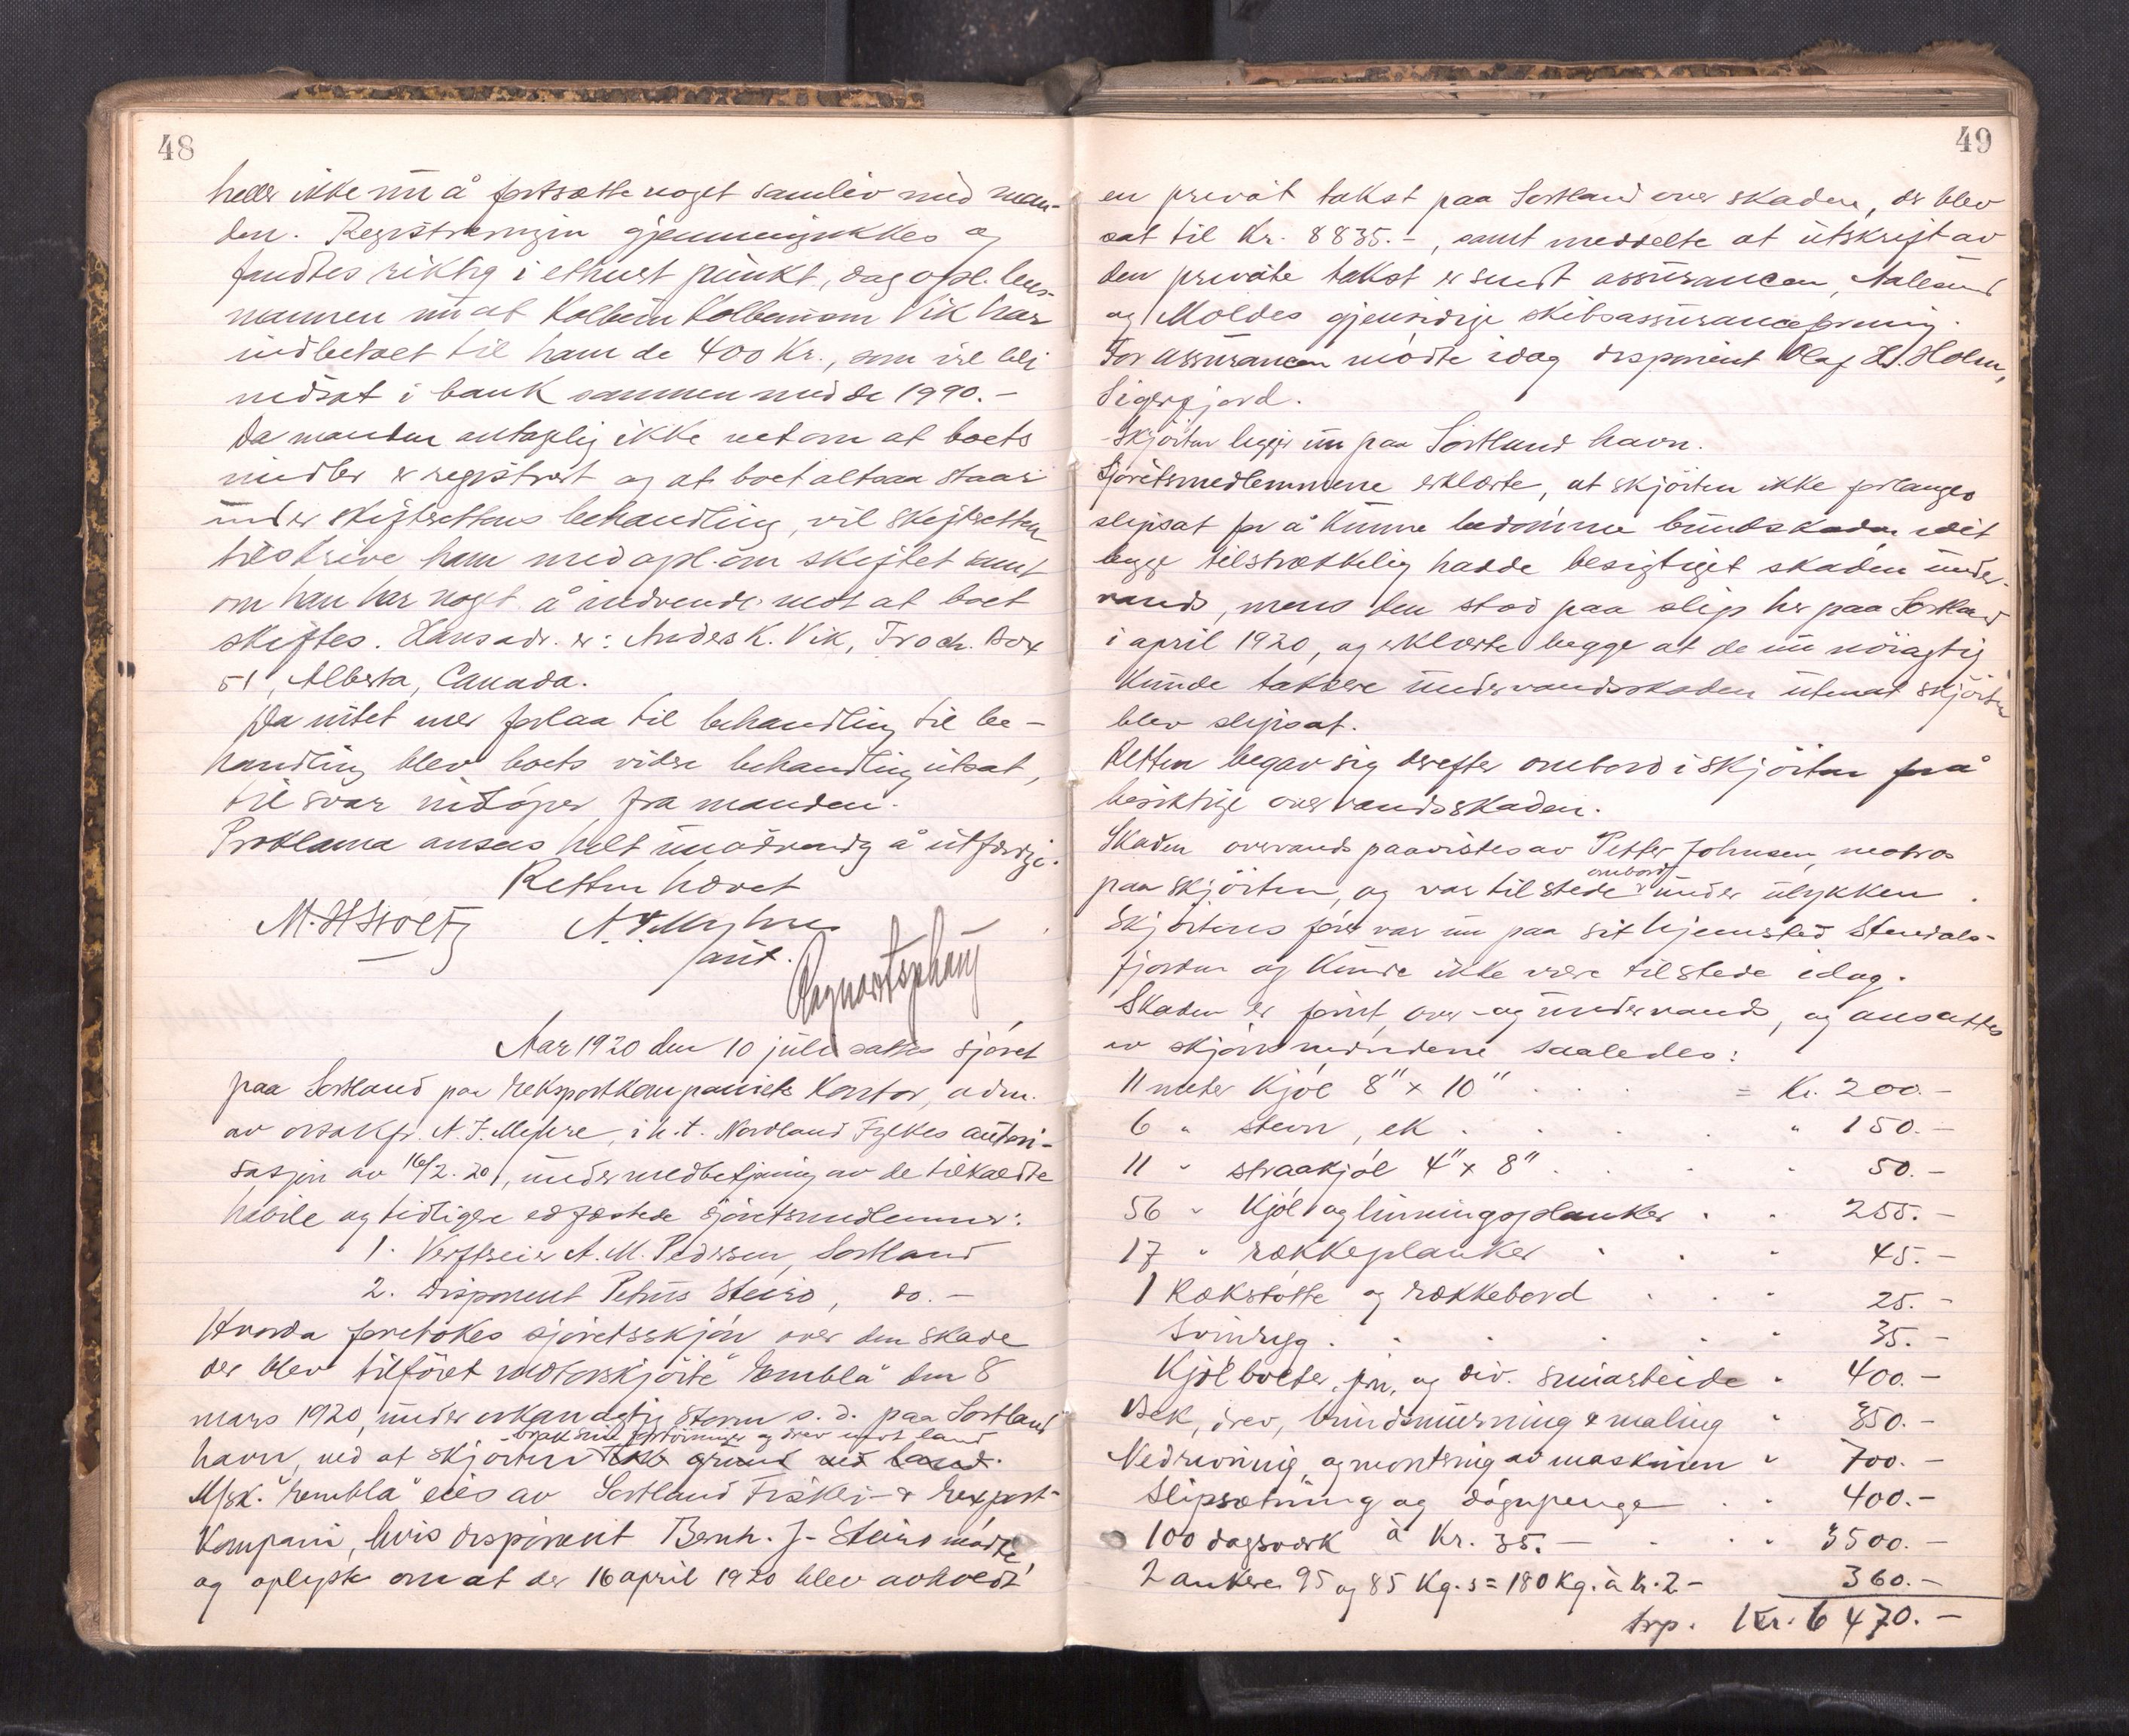 48
heller ikke nu å fortsætte noget samliv med man-
den. Registreringen gjennemgikkes og
fandtes riktig i ethvert punkt, dog opl. lens-
mannen nu at Kolbein Kolbeinson Vik har
indbetalt til ham de 400 Kr., som vil bli
indsat i bank sammen med de 1990.-
Da manden antagelig ikke vet om at boets
midler er registrert og at boet altsaa staar
under skifterettens behandling, vil skifteretten
tilskrive ham med opl. om skiftet samt
om han har noget å indvende mot at boet
skiftes. Hans adr. er: Anders K. Vik, Box
51, Alberta, Canada.
Da intet mer forlaa til behandling til be-
handling blev boets videre behandling utsat,
til svar indløper fra manden.
Proklama ansees helt unødvendig å utfærdige.
Retten hævet
M. H. Stoltz A. J. Myhre
aut.
Aar 1920 den 10 juli sattes sjøret
paa Sortland paa Eksportkompaniets Kontor, adm.
av orsakfr. A. J. Myhre, i h.t. Nordland Fylkes autori-
sasjon av 16/2. 20, under medbetjening av de tilkaldte
habile og tidligere edfæstede sjøretsmedlemmer:
1. Verftseier A. M. Pedersen, Sortland
2. Disponent Petrus Steiro, do.-
Hvorda foretokes sjøretsskjøn over den skade
der blev tilføret motorskjøite "Embla" den 8
mars 1920, under orkanagtig storm s. d. paa Sortland
brak sine fortøininger og drev mot land
havn, ved at skjøiten tok grund ved land.
M/sk. "Embla" eies av Sortland Fiskeri- & Export-
Kompani, hvis disponent Bernh. J. Steiro møtte,
og oplyste om at der 16 april 1920 blev avholdt
49
en privat takst paa Sortland over skaden, der blev
sat til Kr. 8835.-, samt meddelte at utskrift av
den private takst er sendt assurancen, Aalesund
og Moldes gjensidige skibsassuranceforening.
For assurancen mødte idag disponent Olaf H. Holm,
Sigerfjord.
Skjøiten ligger nu paa Sortland havn.
Sjøretsmedlemmene erklærte, at skjøiten ikke forlanges
slipsat for å kunne bedømme bundskaden, idet
begge tilstrækkelig hadde besigtiget skaden under-
vands, mens den stod paa slip her paa Sortland
i april 1920, og erklærte begge at de nu nøiagtig
kunde taksere undervandsskaden uten at skjøiten
blev slipsat.
Retten begav sig derefter ombord i skjøiten for å
besiktige overvandsskaden.
Skaden overvands paavistes av Petter Johnsen, matros
ombord
paa skjøiten, og var tilstede under ulykken.
Skjøitens fører var nu paa sit hjemsted Stensdals-
fjorden og kunde ikke være tilstede idag.
Skaden er saavel over- og undervands, og ansattes
av skjønsmændene saaledes:
11 meter Kjøl 8" x 10" = Kr. 200.-
6 " stevn, ek " 150.-
11 " straakjøl 4" x 8" 50.-
56 " Kjøl og hinningsplanker 255.-
17 " rækkeplanker " 45.-
1 Rækstøtte og rækkebord " 25.-
Svinryg " 35.-
Kjølbolter, og div. smiarbeide " 400.-
Bek, drev, bundsmurning & maling " 350.-
Nedrivning og montering av maskinen " 700.-
Slipsætning og døgnpenge 400.-
100 dagsverk à Kr. 35.- 3500.-
2 ankere 95 og 85 Kg.s = 180 Kg. à kr. 2- 360.-
trp. Kr. 6470.-